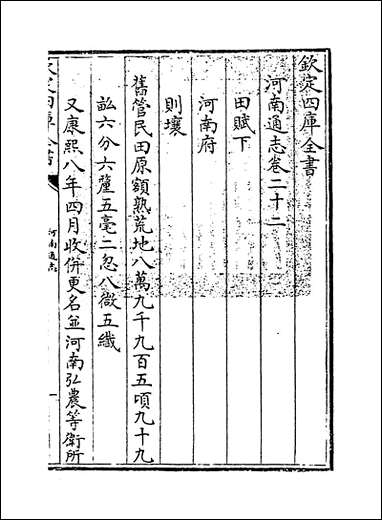 欽定四庫全書
河南通志卷二十二
田賦下
河南府
則壤
舊管民田原額熟荒地八萬九千九百五頃九十九
畝六分六釐五毫二忽八微五纖
又康熙八年四月收併更名並河南弘農等衛所
河南通志
一